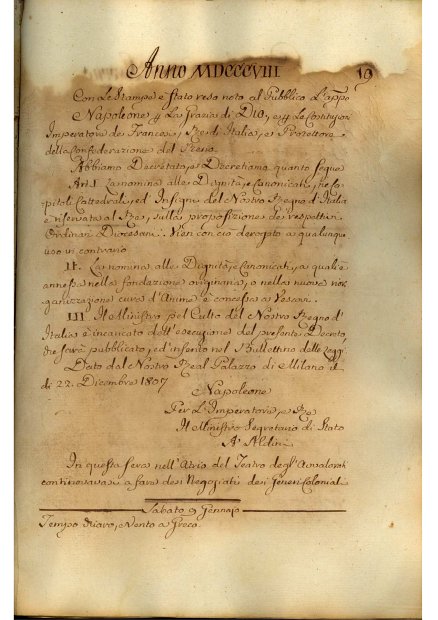 Anno MDCCCVIII
19
Con Le Stampe è stato reso noto al Pubblico L'app.o
Napoleone p La grazia di DIO, e p Le Costituzioni
Imperatore de Francesi, Re d'Italia, e Protettore
della Confederazione del Reno.
Abbiamo Decretato, e Decretiamo quanto segue
Art. I La nomina alle Dignità, e Canonicati, ne Ca-
pitoli Cattedrali, ed Insigni del Nostro Regno d'Italia
è riservata al Re, sulla proposizione de respettivi
Ordinari Diocesani. Vien con ciò derogato a qualunque
uso in contrario
II. La nomina alle Dignità, e Canonicati, a quali è
annessa nella fondazione originaria, o nella nuova rior-
ganizzazione cura d'Anime è concessa a Vescovi.
III Il Ministro pel Culto del Nostro Regno d'
Italia è incaricato dell'esecuzione del presente Decreto,
che sarà pubblicato, ed inserito nel Bullettino delle Leggi.
Dato dal Nostro Real Palazzo di Milano il
di 22. Dicembre 1807
Napoleone
Per L'Imperatore, e Re
Il Ministro Segretario di Stato
A. Aldini
In questa sera nell'Atrio del Teatro degl'Avvalorati
continovava a farsi dei Negoziati dei Generi Coloniali
Sabato 9 Gennajo
Tempo chiaro, e Vento a Greco.